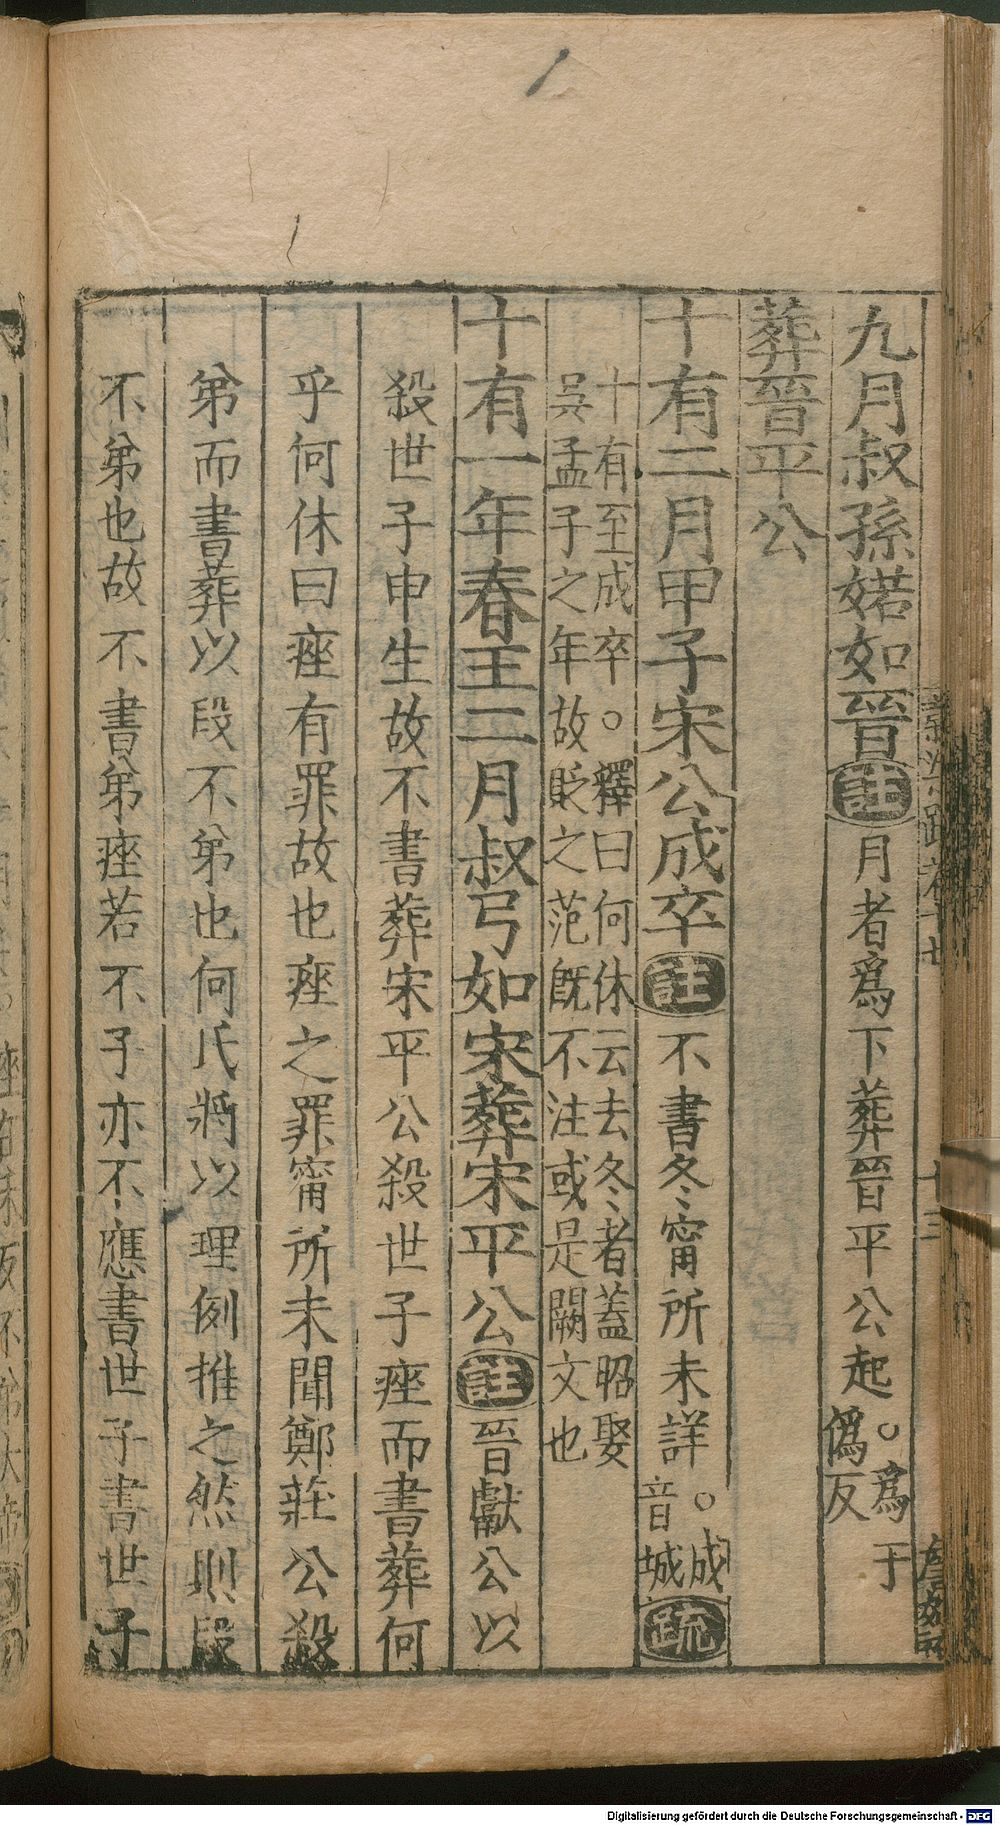 九月叔孫婼如晉註月者爲下葬晉平公起。爲于
僞反
葬晉平公
十有二月甲子宋公成卒註不書冬甯所未詳。成
音城疏
十有至成卒。釋曰何休云去冬者蓋昭娶
吳孟子之年故貶之范旣不注或是闕文也
十有一年春王二月叔弓如宋葬宋平公註晉獻公以
殺世子申生故不書葬宋平公殺世子痤而書葬何
乎何休曰痤有罪故也痤之罪甯所未聞鄭莊公殺
弟而書葬以段不弟也何氏將以理例推之然則段
不弟也故不書弟痤若不子亦不應書世子書世子
十三
Digitalisierung gefördert durch die Deutsche Forschungsgemeinschaft - DFG